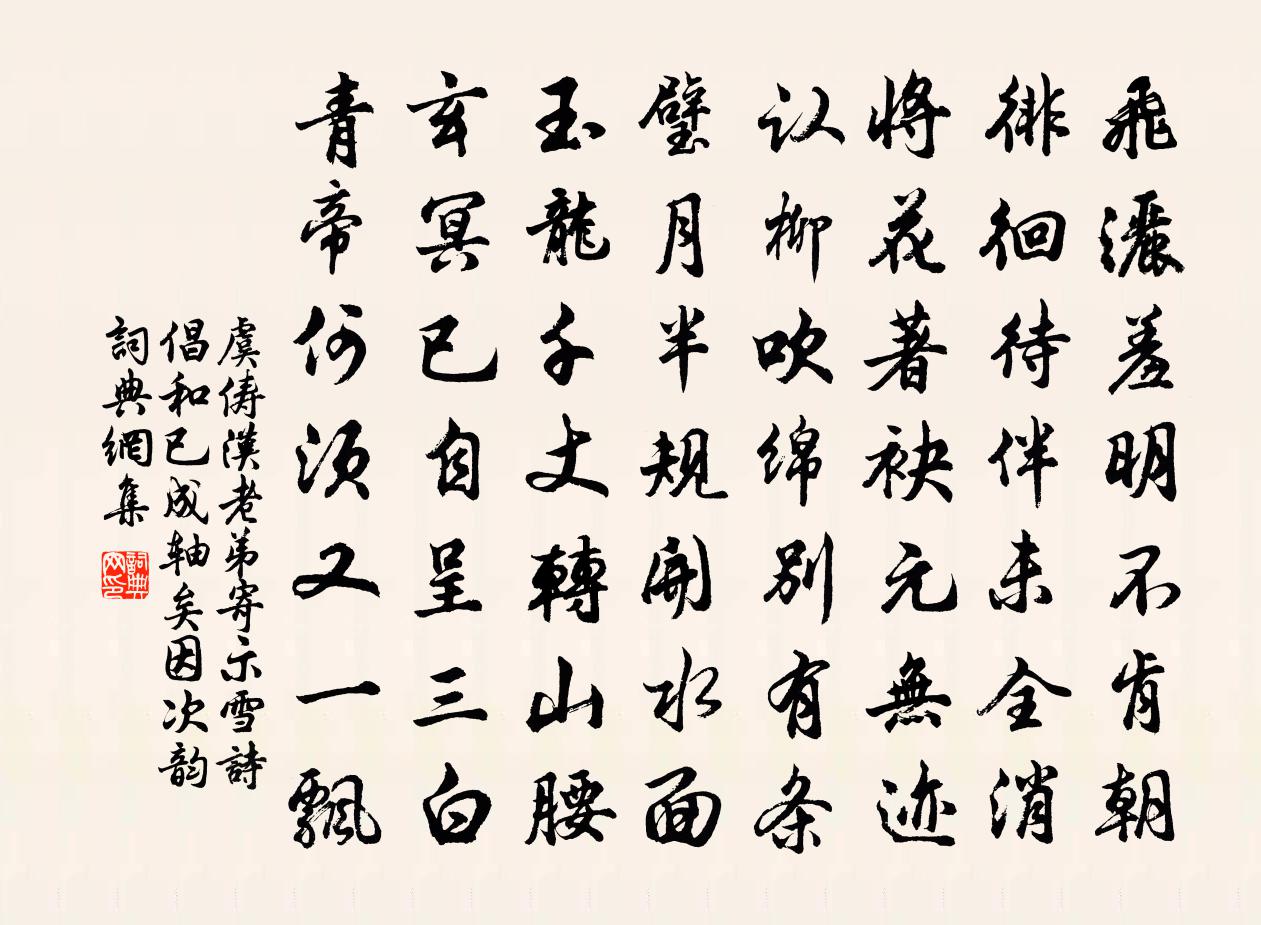 飛灑羞明不肯朝
徘徊待伴未全消
將花著袂元無迹
认柳吹绵别有条
璧月半規開水面
玉龍千丈轉山腰
玄冥已自呈三白
青帝何須又一飄
虞儔漢老弟寄示雪詩
倡和已成軸矣因次韵
詞典網集
詞典网印